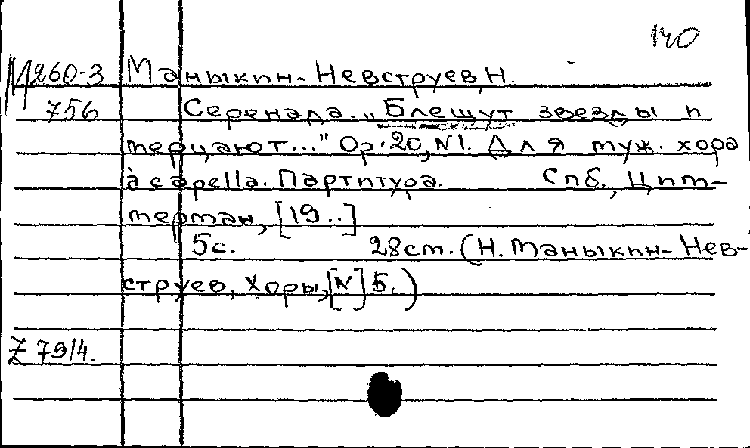 140
М260-3 Маныкин-Невструев, Н.
756 Серенада. „Блещут звезды и
мерцают..." Ор. 20, N1. Для муж. хора
à capella. Партитура. Спб., Цим-
мерман, [19..]
5с. 28см. (Н. Маныкин-Нев-
струев, Хоры, [N] 5.)
Z 79/4.